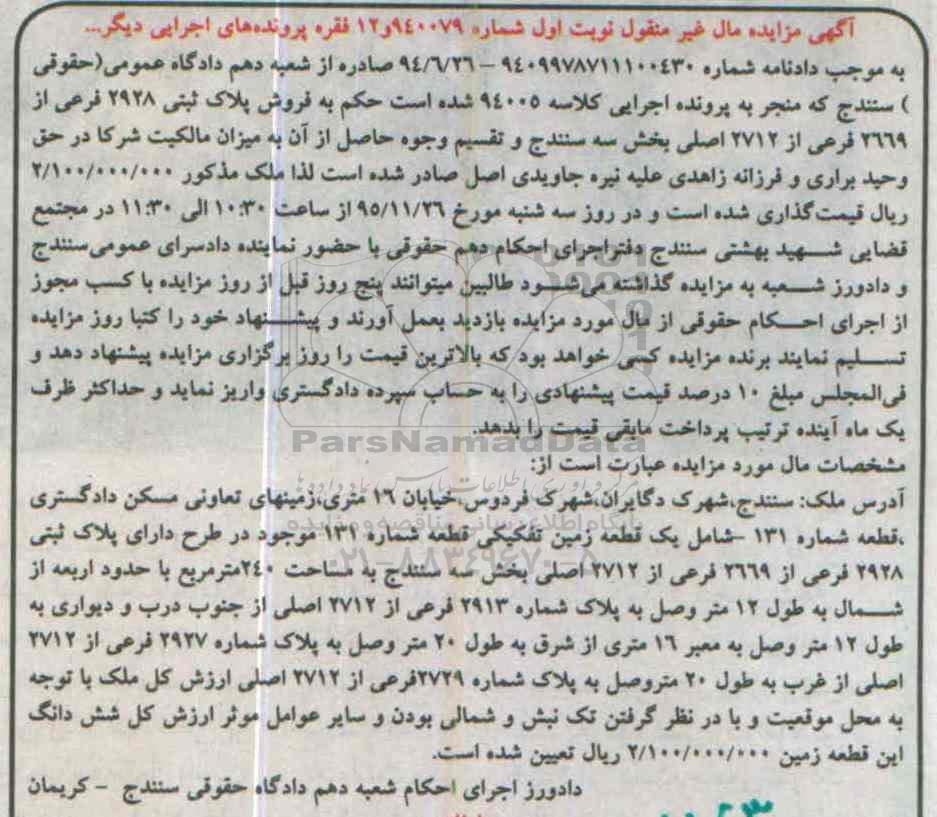 آگهی مزایده مال غیر منقول نوبت اول شماره ۹۴۰۰۷۹و۱۲ فقره پرونده‌های اجرایی دیگر...
به موجب دادنامه شماره ۹۴۰۹۹۷۸۷۱۱۱۰۰۴۳۰ – ۹۴/۶/۲۶ صادره از شعبه دهم دادگاه عمومی(حقوقی
) سنندج که منجر به پرونده اجرایی کلاسه ۹۴۰۰۵ شده است حکم به فروش پلاک ثبتی ۲۹۲۸ فرعی از
۲۶۶۹ فرعی از ۲۷۱۲ اصلی بخش سه سنندج و تقسیم وجوه حاصل از آن به میزان مالکیت شرکا در حق
وحید براری و فرزانه زاهدی علیه نیره جاویدی اصل صادر شده است لذا ملک مذکور ۲/۱۰۰/۰۰۰/۰۰۰
ریال قیمت‌گذاری شده است و در روز سه شنبه مورخ ۹۵/۱۱/۲۶ از ساعت ۱۰:۳۰ الی ۱۱:۳۰ در مجتمع
قضایی شهید بهشتی سنندج دفتراجرای احکام دهم حقوقی با حضور نماینده دادسرای عمومی‌سنندج
و دادورز شعبه به مزایده گذاشته می‌شود طالبین میتوانند پنج روز قبل از روز مزایده با کسب مجوز
از اجرای احکام حقوقی از مال مورد مزایده بازدید بعمل آورند و پیشنهاد خود را کتبا روز مزایده
تسلیم نمایند برنده مزایده کسی خواهد بود که بالاترین قیمت را روز برگزاری مزایده پیشنهاد دهد و
فی‌المجلس مبلغ ۱۰ درصد قیمت پیشنهادی را به حساب سپرده دادگستری واریز نماید و حداکثر ظرف
یک ماه آینده ترتیب پرداخت مابقی قیمت را بدهد.
ParsNamadData
مشخصات مال مورد مزایده عبارت است از:
آدرس ملک: سنندج،شهرک دگایران،شهرک فردوس،خیابان ۱۶ متری،زمینهای تعاونی مسکن دادگستری
پایگاه اطلاع رسانی مناقصه و مزایده
،قطعه شماره ۱۳۱ –شامل یک قطعه زمین تفکیکی قطعه شماره ۱۳۱ موجود در طرح دارای پلاک ثبتی
۰۲۱-۸۸۳۴۹۶۷۰-۵
۲۹۲۸ فرعی از ۲۶۶۹ فرعی از ۲۷۱۲ اصلی بخش سه سنندج به مساحت ۲۴۰مترمربع با حدود اربعه از
شمال به طول ۱۲ متر وصل به پلاک شماره ۲۹۱۳ فرعی از ۲۷۱۲ اصلی از جنوب درب و دیواری به
طول ۱۲ متر وصل به معبر ۱۶ متری از شرق به طول ۲۰ متر وصل به پلاک شماره ۲۹۲۷ فرعی از ۲۷۱۲
اصلی از غرب به طول ۲۰ متروصل به پلاک شماره ۲۷۲۹فرعی از ۲۷۱۲ اصلی ارزش کل ملک با توجه
به محل موقعیت و با در نظر گرفتن تک نبش و شمالی بودن و سایر عوامل موثر ارزش کل شش دانگ
این قطعه زمین ۲/۱۰۰/۰۰۰/۰۰۰ ریال تعیین شده است.
دادورز اجرای احکام شعبه دهم دادگاه حقوقی سنندج – کریمان